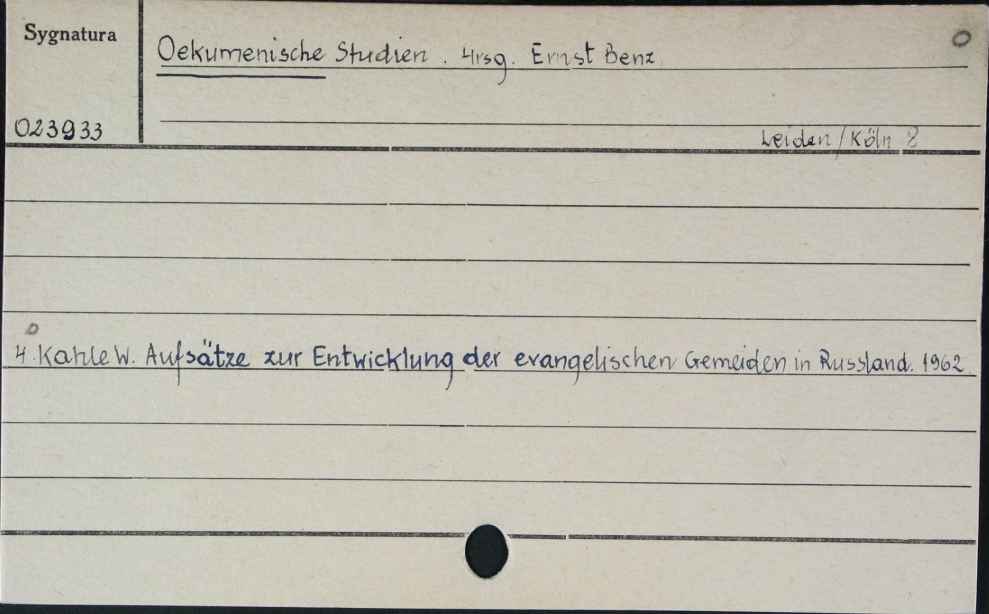 Sygnatura
Oekumenische Studien. Hrsg. Ernst Benz
023933
Leiden/Köln 8
4. Kahle W. Aufsätze zur Entwicklung der evangelischen Gemeiden in Russland. 1962